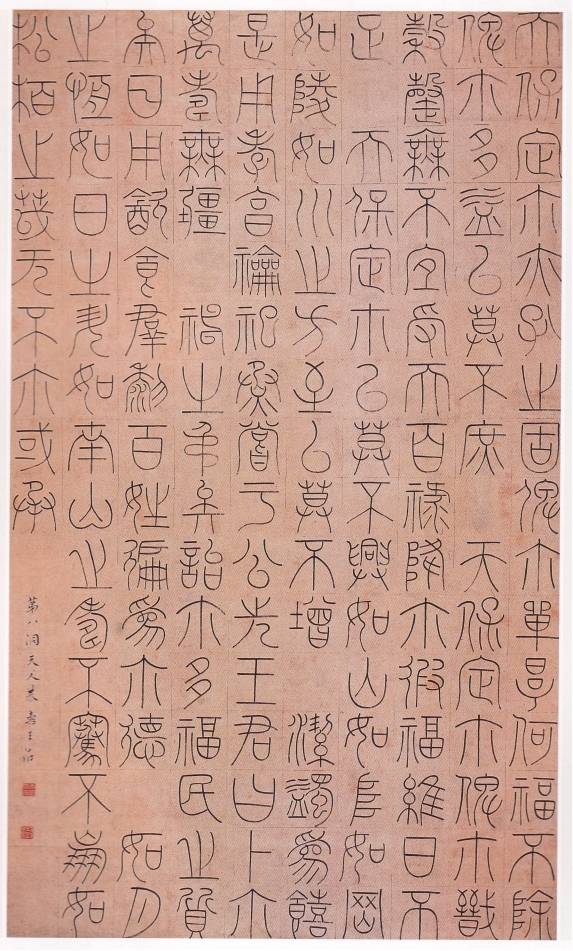 天保定尔亦孔之固俾尔單厚何福不除
俾尔多益以莫不庶　天保定尔俾尔戩
穀罄無不宜受天百祿降尔遐福維日不
足　天保定尔以莫不興如山如阜如岡
如陵如川之方至以莫不增　潔蠲為饎
是用孝享禴祠烝嘗于公先王君曰卜尔
萬壽無疆　神之弔矣詒尔多福民之質
矣日用飲食群黎百姓徧為尔德　如月
之恆如日之升如南山之壽不騫不崩如
松柏之茂无不尔或承
第八洞天人